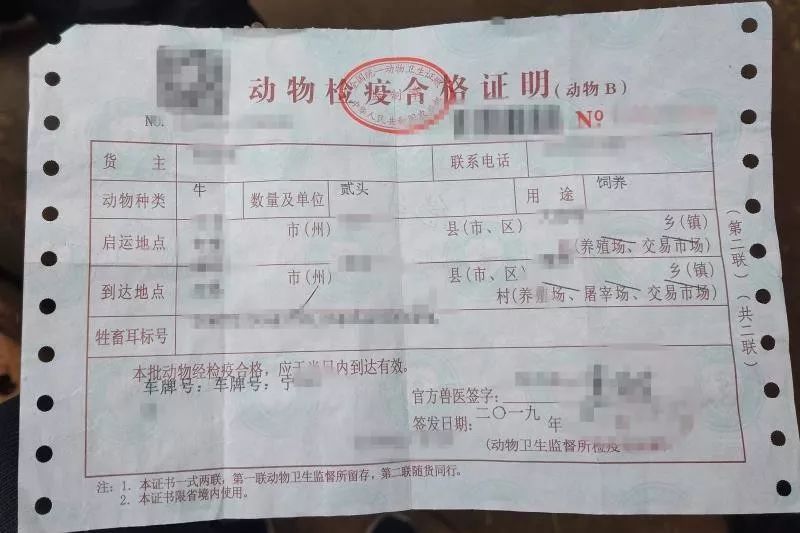 动物检疫合格证明(动物B)
全国统一动物卫生证章
NO.
№
货 主
联系电话
动物种类 牛 数量及单位 贰头 用 途 饲养
启运地点 市(州) 县(市、区) 乡(镇)
(养殖场、交易市场)
到达地点 市(州) 县(市、区) 乡(镇)
村(养殖场、屠宰场、交易市场)
牲畜耳标号
本批动物经检疫合格,应于当日内到达有效。
车牌号:车牌号:宁
官方兽医签字:
签发日期:二〇一九 年
(动物卫生监督所检疫
注:1. 本证书一式两联,第一联动物卫生监督所留存,第二联随货同行。
2. 本证书限省境内使用。
(第二联)
(共二联)